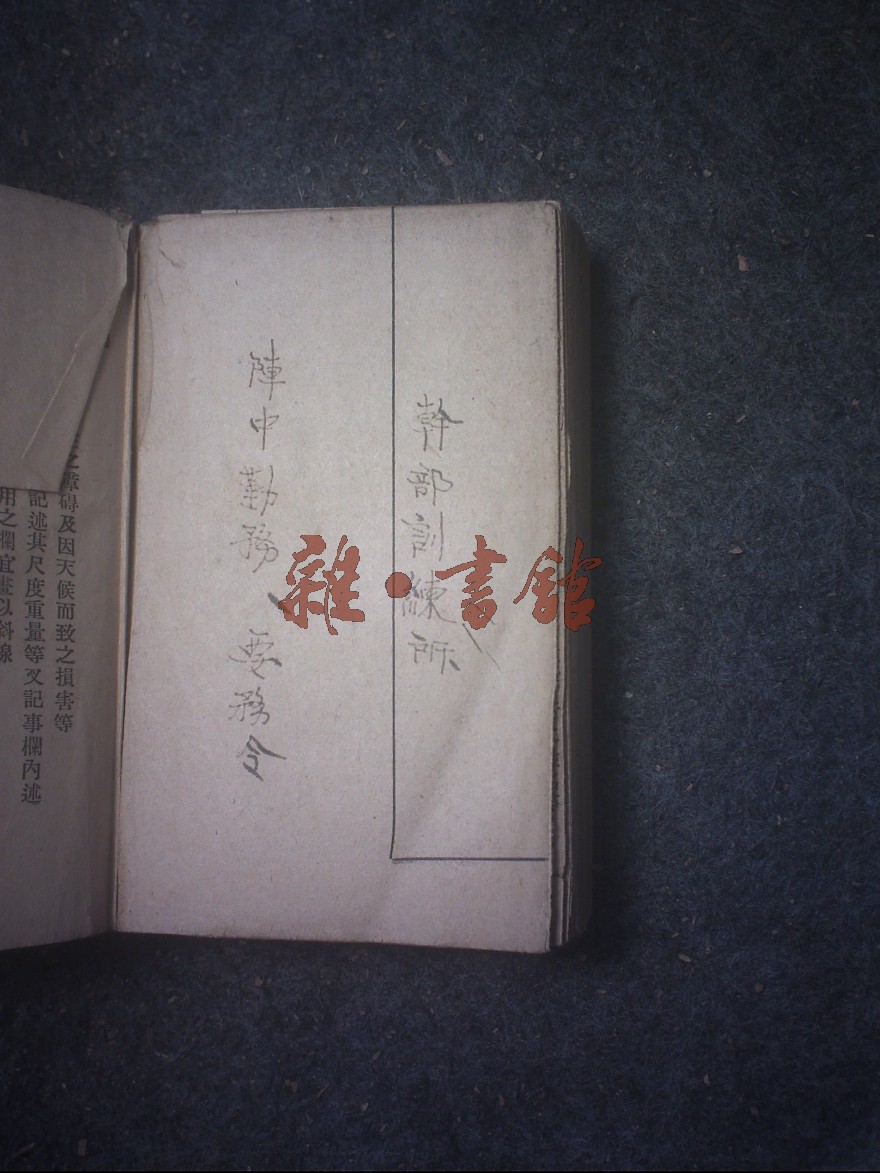 幹部訓練所
陣中勤務、要務令
雜·書館
之障碍及因天候而致之損害等
記述其尺度重量等又記事欄內述
用之欄宜畫以斜線